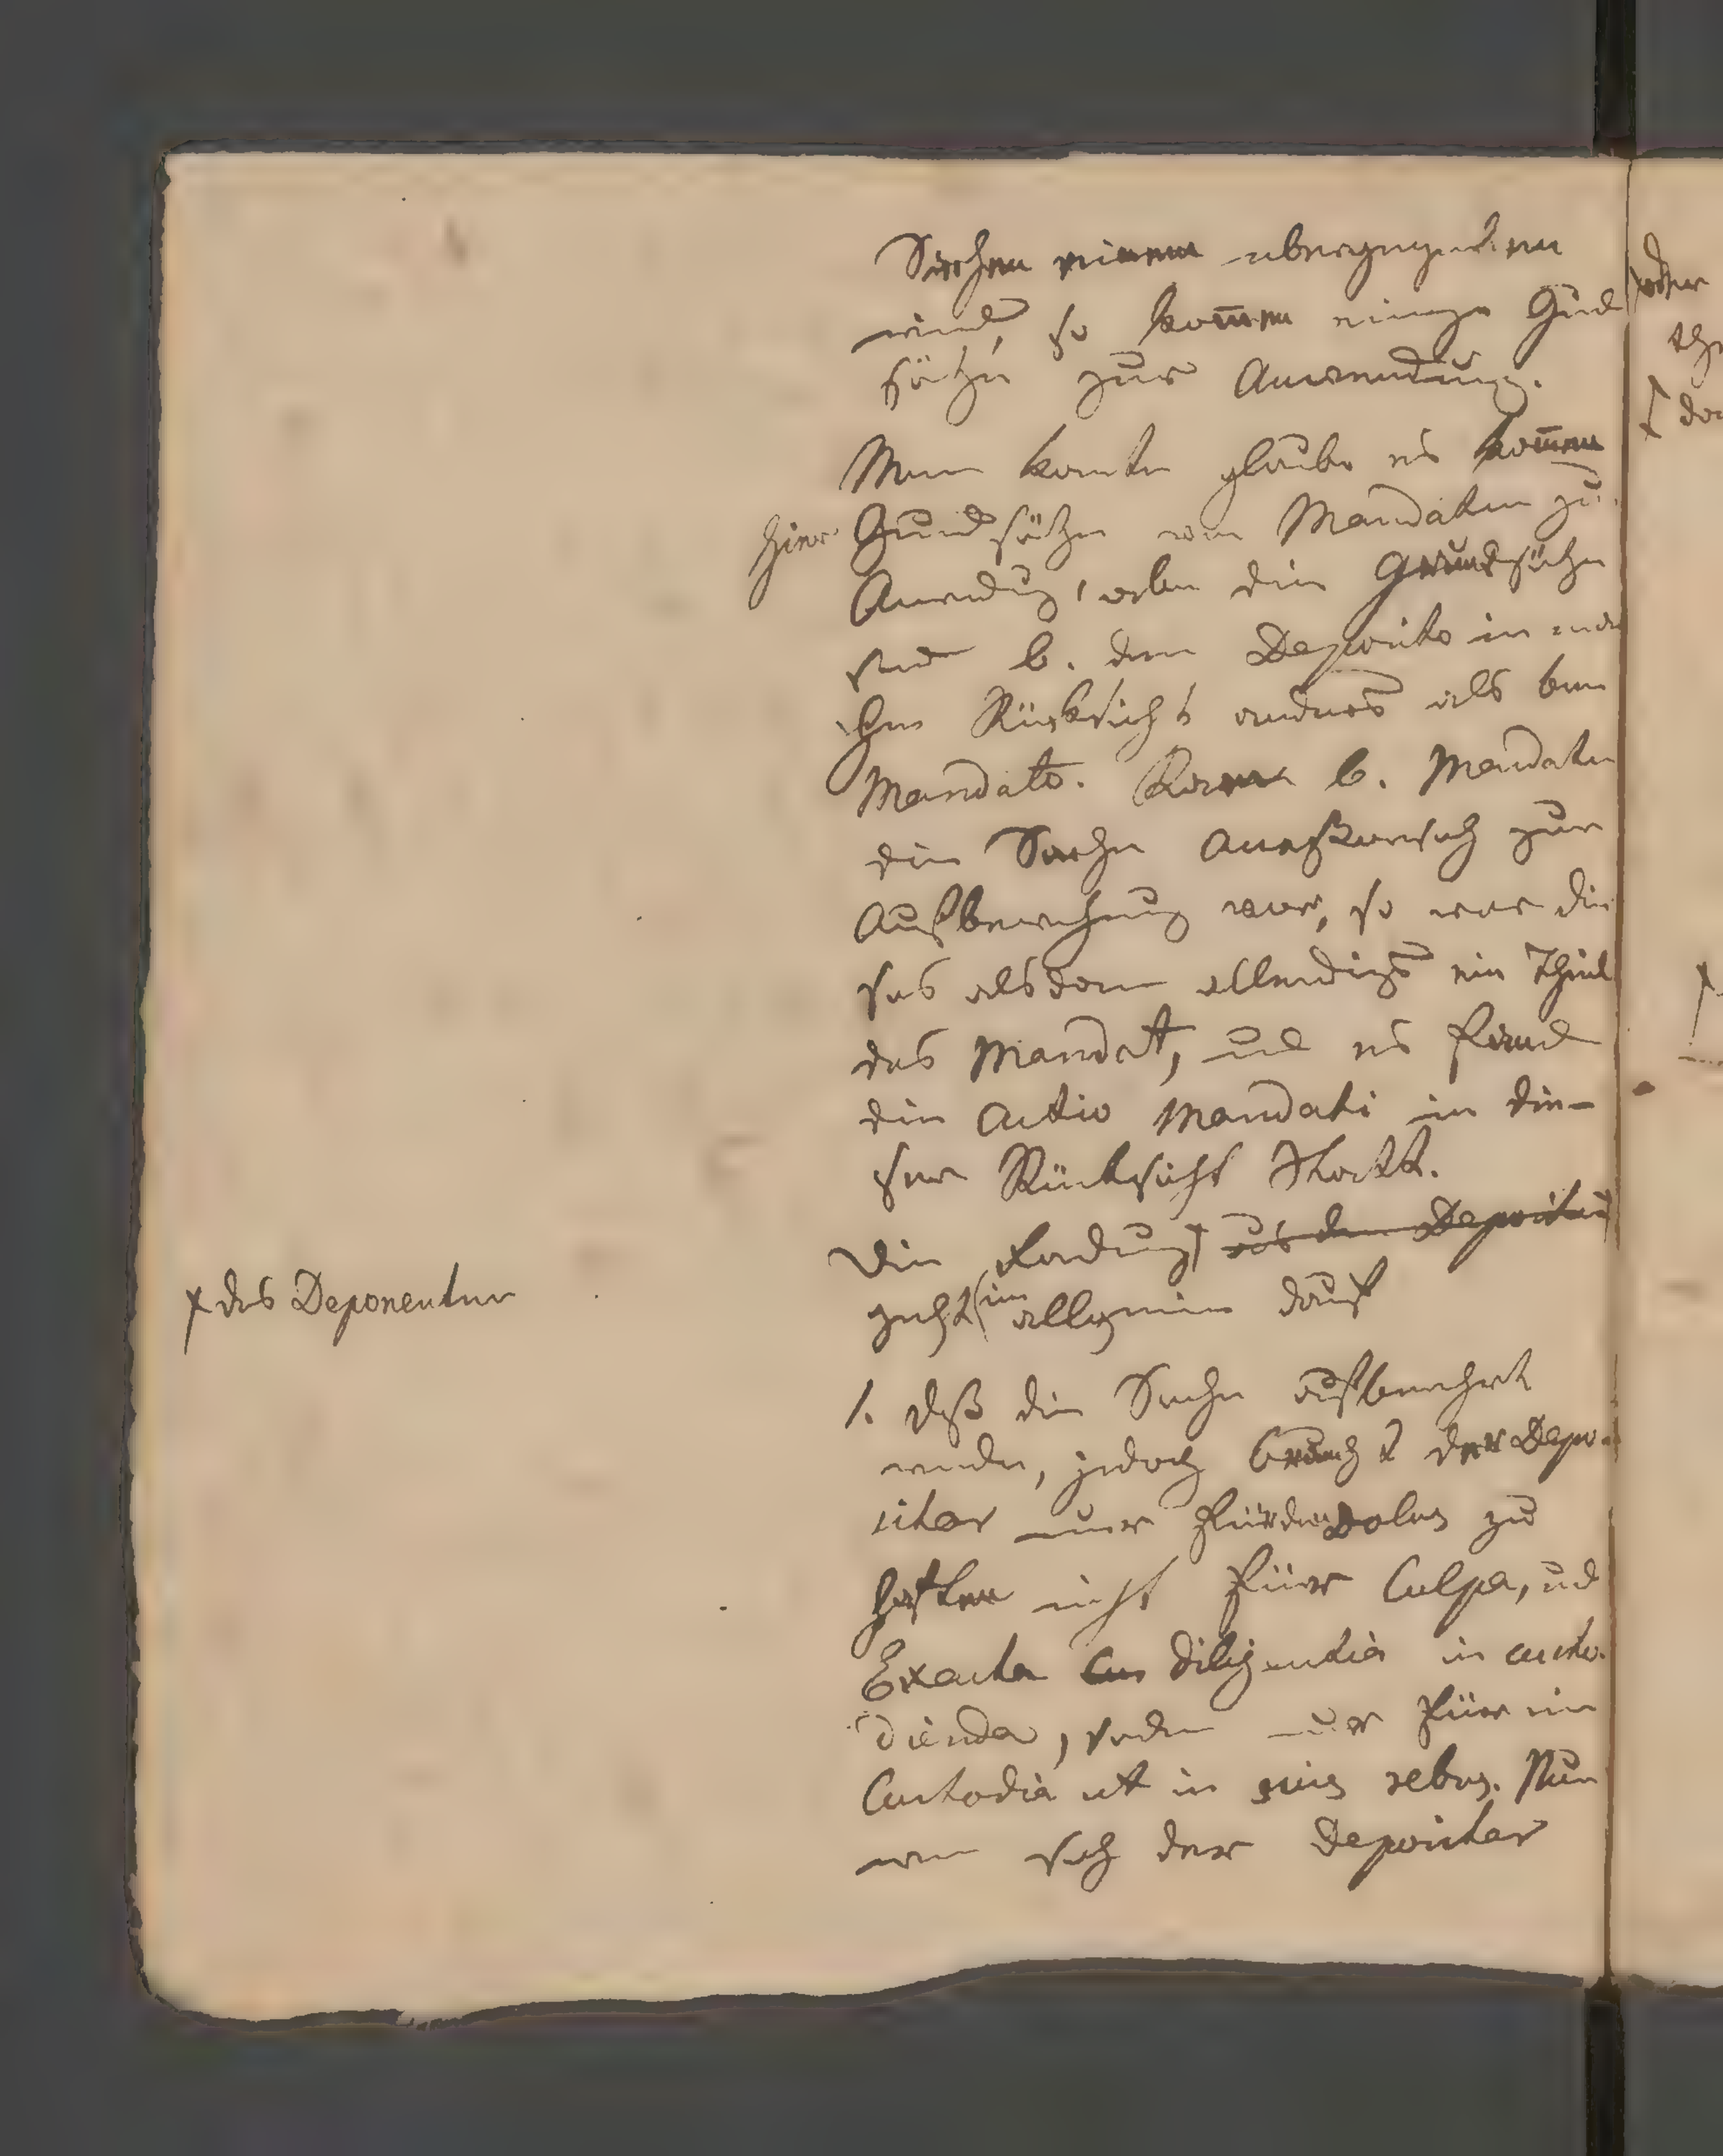 Sachen einem ubergegeben
wird, so kom̅en einige Gud
sätze zur Anwendung.
Man konte glaube es kom̅en
hier Gundsätze von Mandaten zu
Anwendug, aber die Grundsätze
sind b. dem Deposito in man
cher Rücksicht anders als bem
Mandato. Kam b. Mandate
die Sache auch zur
Aufbewahrung vor, so war die
ses alsdann allerdigs ein Theil
des Mandat, und es fand
die Actio Mandati in die-
ser Rücksicht Statt.
Die Fordung aus dem Depositu
× des Deponenten
geht im allgemein dauf
1. daß die Sache aufbewahrt
werde, jedoch brauch t der Depo
sitar nur für den Dolus zu
haften nicht für Culpa, ud
Exacta Diligentia in custo.
dienda, sodern nur für ein
Custodia ut in suis rebus. Nur
wen sich der Depositar